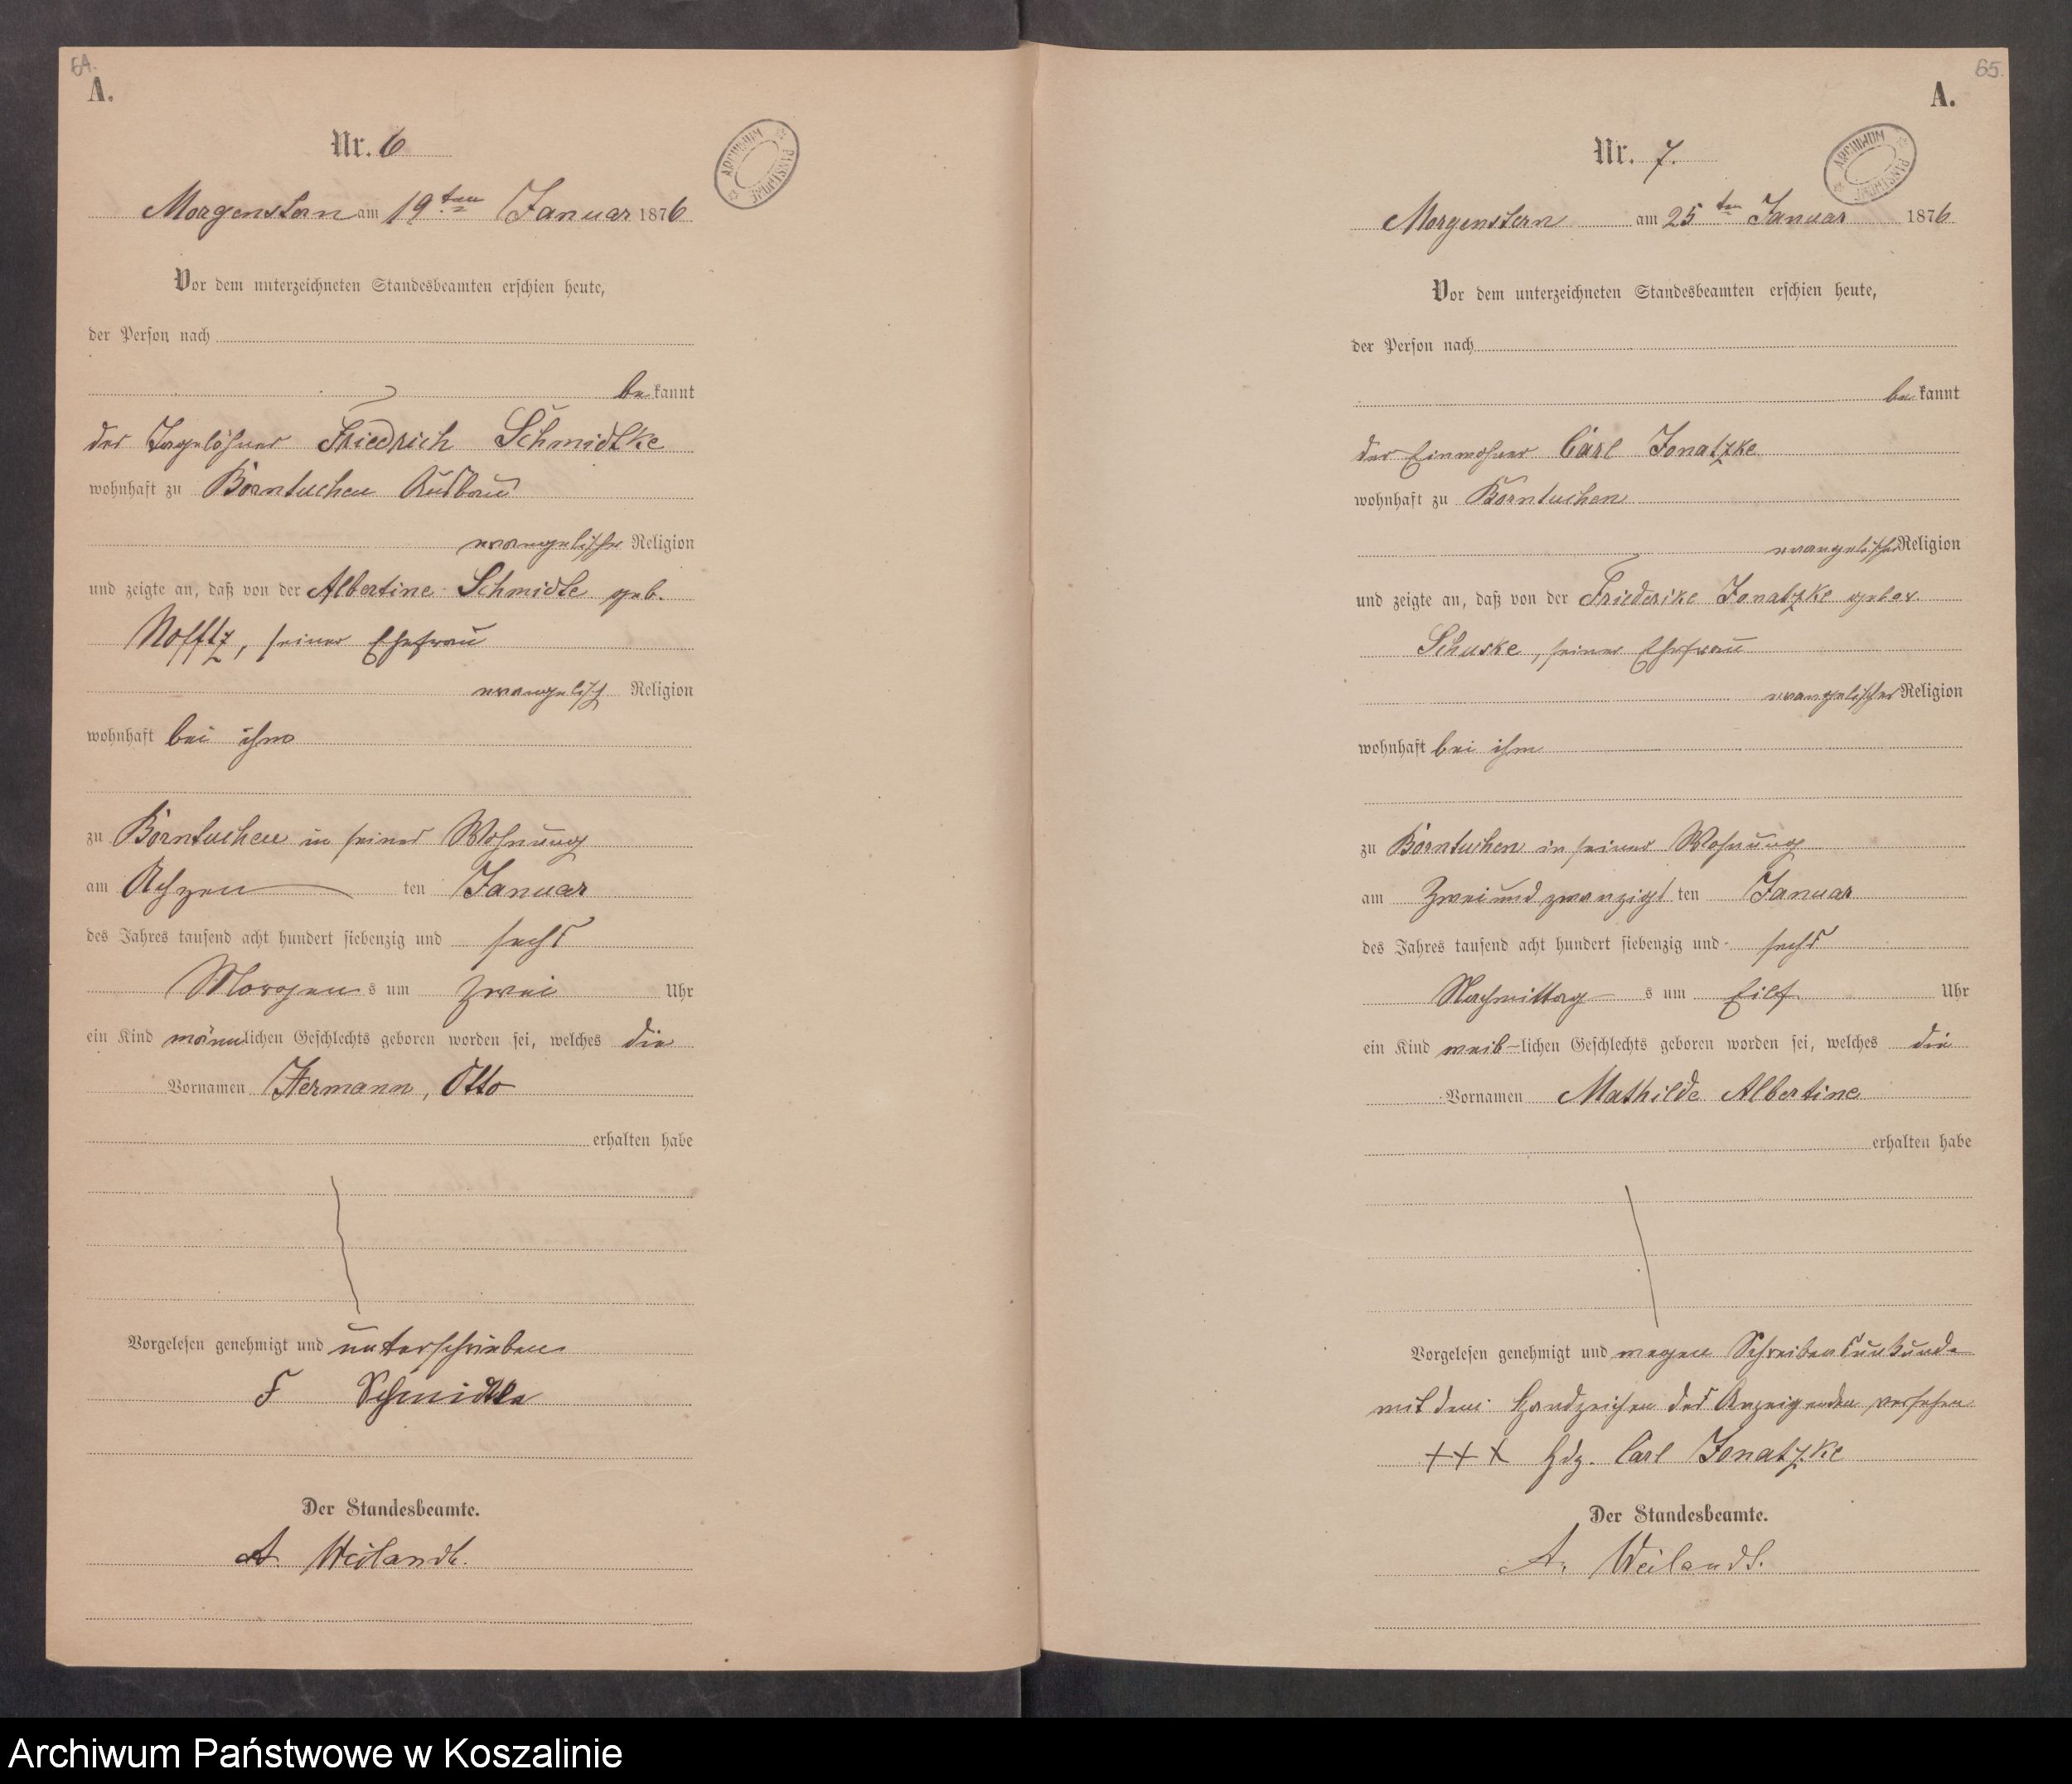 64.
A.
Nr. 6
ARCHIWUM PAŃSTWOWE
Morgenstern am 19ten Januar 1876
Vor dem unterzeichneten Standesbeamten erschien heute,
der Person nach
bekannt
der Tagelöhner Friedrich Schmidtke
wohnhaft zu Borntuchen Ausbau
evangelischer Religion
und zeigte an, daß von der Albertine Schmidtke geb.
Nofftz, seiner Ehefrau
evangelisch Religion
wohnhaft bei ihm
zu Borntuchen in seiner Wohnung
am Achzen ten Januar
des Jahres tausend acht hundert siebenzig und sechs
Morgens um zwei Uhr
ein Kind männlichen Geschlechts geboren worden sei, welches die
Vornamen Hermann, Otto
erhalten habe
Vorgelesen genehmigt und unterschrieben
F Schmidtke
Der Standesbeamte.
A. Weilandt.
65.
A.
Nr. 7.
ARCHIWUM PAŃSTWOWE
Morgenstern am 25ten Januar 1876
Vor dem unterzeichneten Standesbeamten erschien heute,
der Person nach
bekannt
der Einwohner Carl Jonatzke
wohnhaft zu Borntuchen
evangelischer Religion
und zeigte an, daß von der Friederike Jonatzke gebor.
Schuske, seiner Ehefrau
evangelischer Religion
wohnhaft bei ihm
zu Borntuchen in seiner Wohnung
am Zweiundzwanzigsten Januar
des Jahres tausend acht hundert siebenzig und sechs
Nachmittags um Eilf Uhr
ein Kind weib-lichen Geschlechts geboren worden sei, welches die
Vornamen Mathilde Albertine
erhalten habe
Vorgelesen genehmigt und wegen Schreibensunkunde
mit dem Handzeichen des Anzeigenden versehen
+++ Hdz. Carl Jonatzke
Der Standesbeamte.
A. Weilandt.
Archiwum Państwowe w Koszalinie